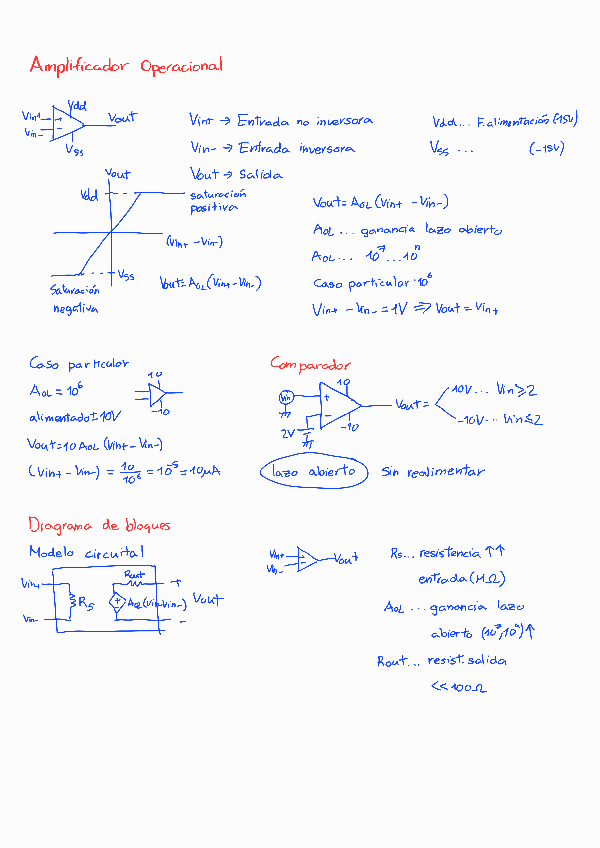 Amplificador Operacional
Vdd
Vin+
Vin-
+
-
Vout
Vss
Vin+ → Entrada no inversora
Vdd... F.alimentación (15V)
Vin- → Entrada inversora
Vss ... (-15V)
Vout → Salida
Vout
Vdd
saturación
positiva
(Vin+ - Vin-)
Vss
Saturación
negativa
Vout=AOL(Vin+-Vin-)
Vout=AOL(Vin+ -Vin-)
AOL ... ganancia lazo abierto
AOL... 10^7...10^n
Caso particular 10^6
Vin+ - Vin- = 1V ⇒ Vout = Vin+
Caso particular
AOL = 10^6
10
-10
alimentado ± 10V
Vout=10 AOL (Vin+ - Vin-)
(Vin+ - Vin-) = 10/10^6 = 10^-5 = 10μA
Comparador
Vin
10
+
-
-10
2V
Vout =
10V... Vin≥2
-10V... Vin≤2
lazo abierto Sin realimentar
Diagrama de bloques
Modelo circuital
Vin+
Vin-
Rs
Rout
+
-
AOL(Vin+-Vin-)
+
Vout
-
Vin+
Vin-
+
-
Vout
Rs... resistencia ↑↑
entrada (MΩ)
AOL ... ganancia lazo
abierto (10^7,10^n)↑
Rout... resist. salida
<<100Ω